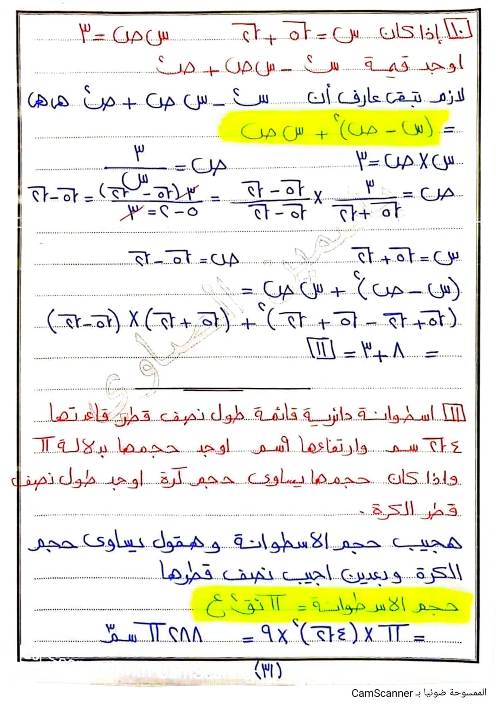 ١٠ إذا كان س = √٥ + √٢ س ص = ٣
اوجد قيمة س٢ - س ص + ص٢
لازم تبقى عارف أن س٢ - س ص + ص٢ هى هى
= (س - ص)٢ + س ص
س × ص = ٣ ص = ٣/س
ص = ٣/(√٥ + √٢) × (√٥ - √٢)/(√٥ - √٢) = ٣(√٥ - √٢)/(٥ - ٢ = ٣) = √٥ - √٢
س = √٥ + √٢ ص = √٥ - √٢
(س - ص)٢ + س ص =
(√٥ + √٢ - √٥ + √٢)٢ + (√٥ + √٢) × (√٥ - √٢)
= ٨ + ٣ = ١١
١١ اسطوانة دائرية قائمة طول نصف قطر قاعدتها
٤√٢ سم وارتفاعها ٩سم اوجد حجمها بدلالة π
واذا كان حجمها يساوى حجم كرة اوجد طول نصف
قطر الكرة .
هجيب حجم الاسطوانة وهقول يساوى حجم
الكرة وبعدين اجيب نصف قطرها
حجم الاسطوانة = π نق٢ ع
= π × (٤√٢)٢ × ٩ = ٢٨٨ π سم٣
(٣١)
الممسوحة ضوئيا بـ CamScanner